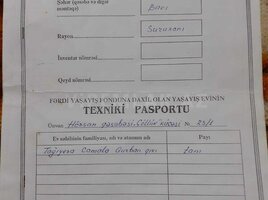 Şəhər (qəsəbə və digər
məntəqə)
Bakı
Rayon
Suraxanı
İnventar nömrəsi
Qeyd nömrəsi
FƏRDİ YAŞAYIŞ FONDUNA DAXİL OLAN YAŞAYIŞ EVİNİN
TEXNİKİ PASPORTU
Ünvan Hövsan qəsəbəsi, küçəsi №
Ev sahibinin familiyası, adı və atasının adı Payı
Tağıyeva Qurban qızı Tam